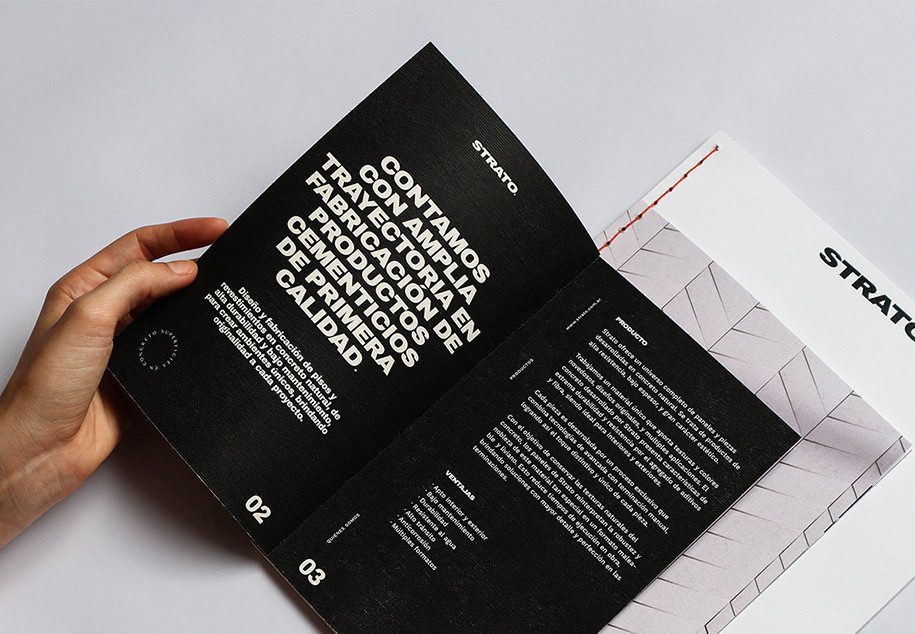 STRATO.
CONTAMOS
CON AMPLIA
TRAYECTORIA EN
FABRICACIÓN DE
PRODUCTOS
CEMENTICIOS
DE PRIMERA
CALIDAD.
Diseño y fabricación de pisos y
revestimientos en concreto natural de
alta durabilidad y bajo mantenimiento,
para crear ambientes únicos, brindando
originalidad a cada proyecto.
02
www.strato.com.ar
PRODUCTOS
PRODUCTO
Strato ofrece un universo completo de paneles y piezas
desarrolladas en concreto natural. Se trata de productos de
alta resistencia, bajo espesor, y gran carácter estético.
Trabajamos un material único que aporta texturas y colores
novedosos, diseños originales, y múltiples aplicaciones. El
concreto desarrollado por Strato presenta características de
extrema durabilidad y resistencia por el agregado de aditivos
y fibra, siendo ideal para interiores y exteriores
Cada pieza es desarrollada por un proceso exclusivo que
combina tecnologías de avanzada con terminación manual,
logrando así el toque distintivo y único de cada pieza.
Con el objetivo de conservar las texturas naturales del
concreto, los paneles de Strato reinterpretan la robustez y
nobleza de este material las especial en un formato malea-
ble y liviano. Esto reduce tiempos de ejecución en obra,
brindando soluciones con mayor detalle y perfección en las
terminaciones.
VENTAJAS
· Apto interior y exterior
· Bajo mantenimiento
· Durabilidad
· Resistente al agua
· Alto tránsito
· Anticorrosión
· Múltiples formatos
QUIENES SOMOS
03
STRATO